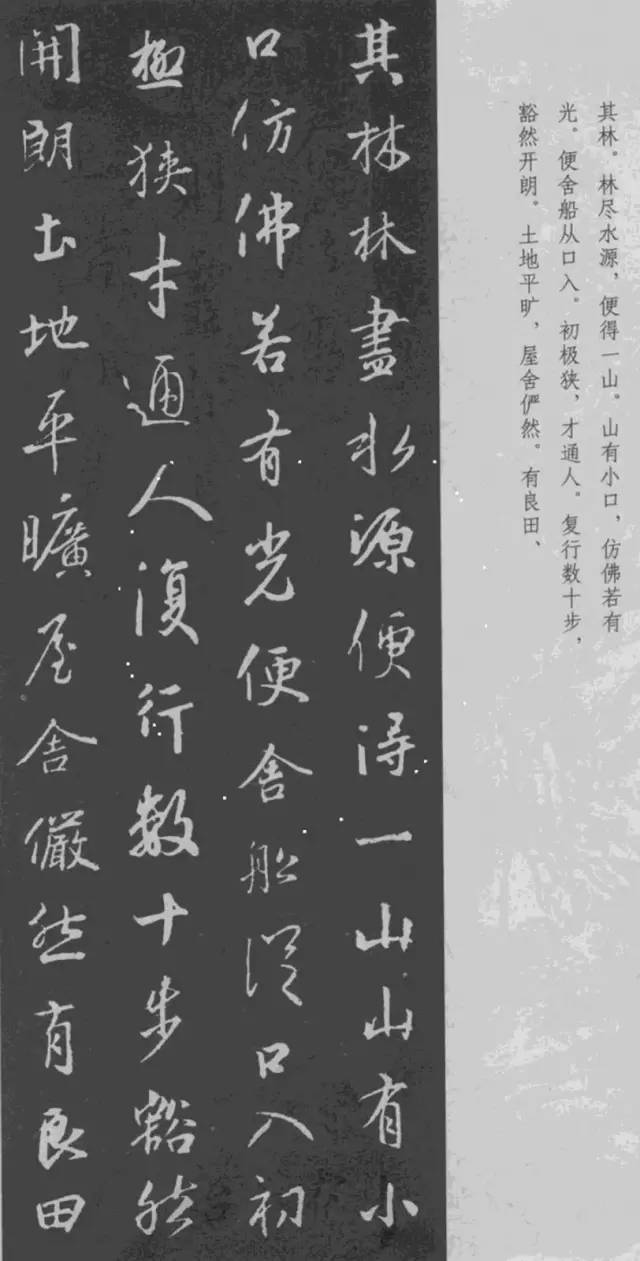 其林。林尽水源，便得一山。山有小口，仿佛若有
光。便舍船从口入。初极狭，才通人。复行数十步，
豁然开朗。土地平旷，屋舍俨然。有良田、
其林林盡水源便得一山山有小
口仿佛若有光便舍船從口入初
極狹才通人復行數十步豁然
開朗土地平曠屋舍儼然有良田